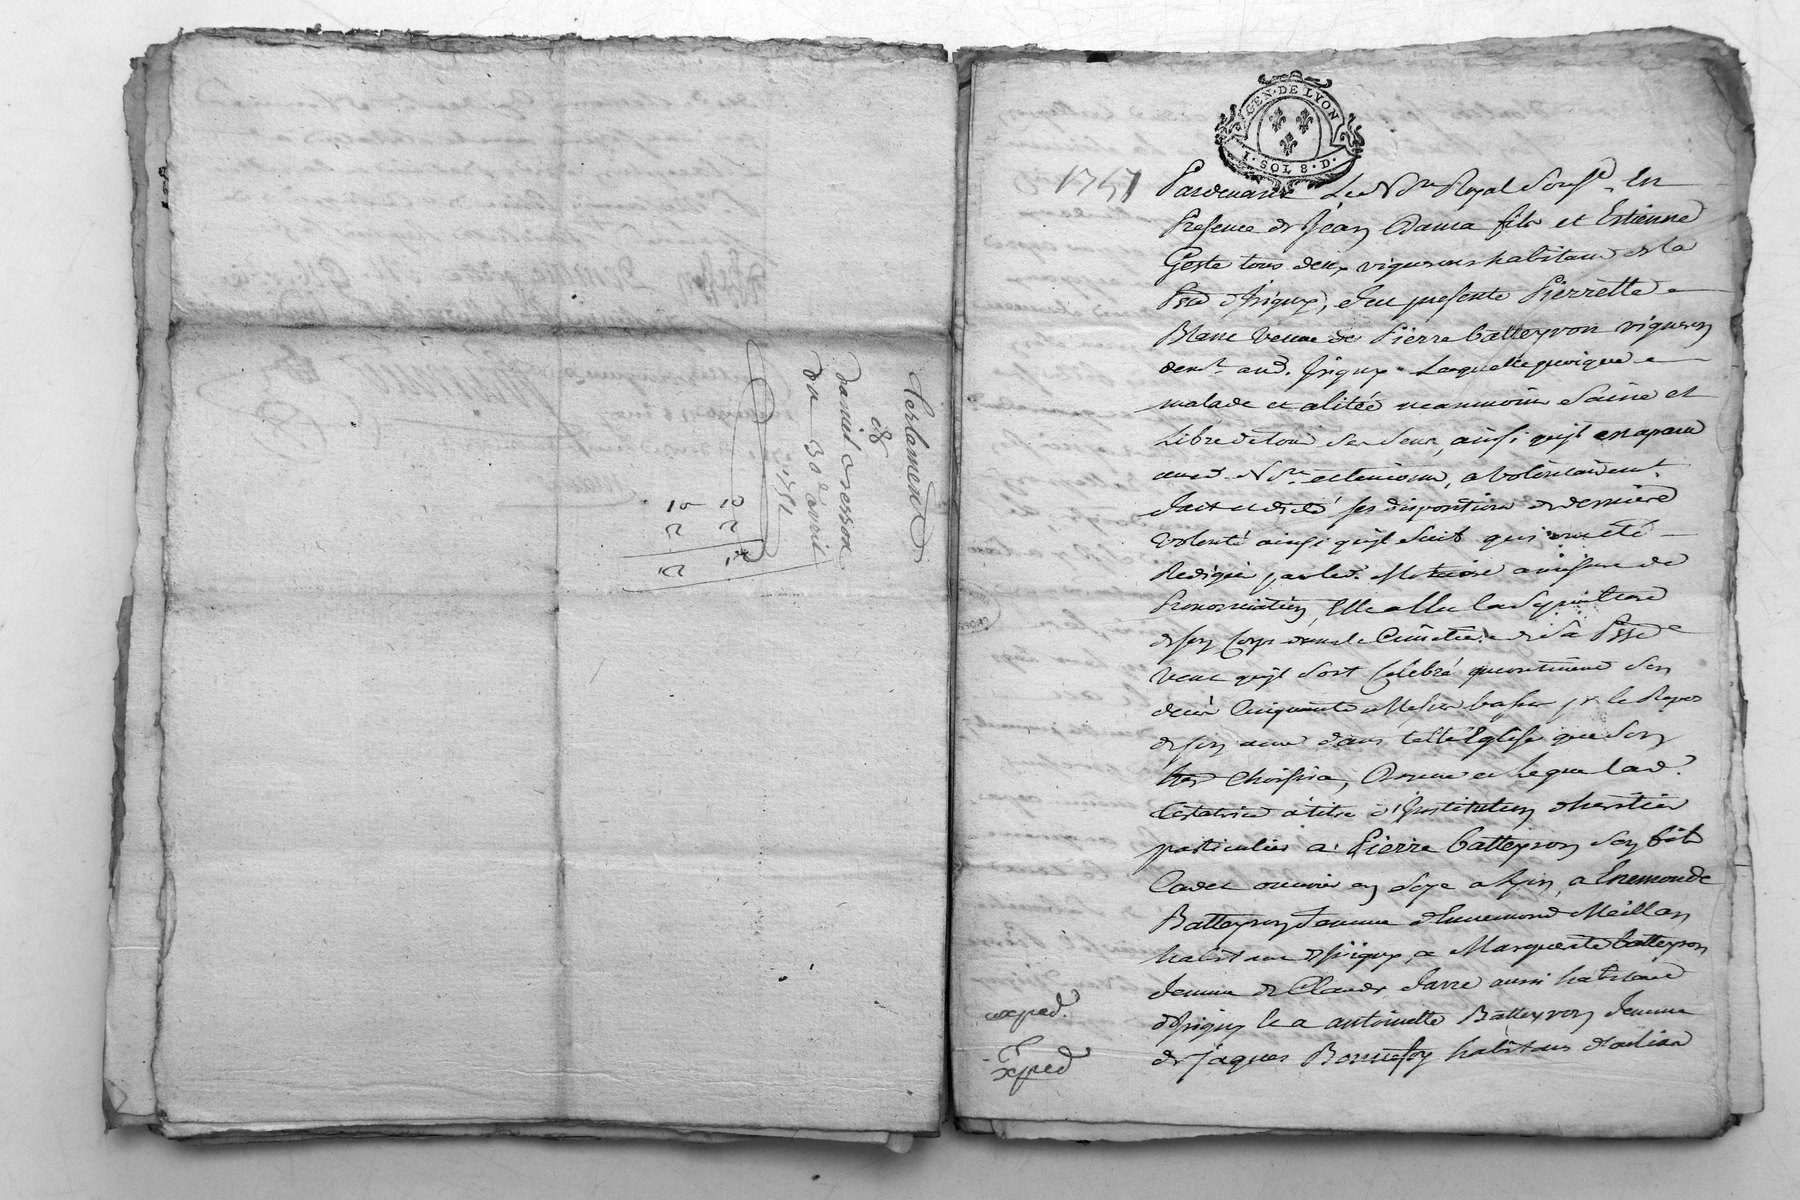 Testament
de
daniel
du 30e avril
1751
GEN·DE LYON
1·SOL 8·D.
1751
Pardevant Le No.re Royal Sousé. En
Presence de Jean Dama fils et Estienne
Geste tous deux vignerons habitans de la
Psse d'Irigny, fut presente Pierrette
Blanc veuve de Pierre batteyron vigneron
demt. aud. Irigny Laquelle quoique
malade et alitée neanmoins Saine et
Libre de tous Ses Sens, ainsi qu'il est aparu
aud. No.re et temoins, a volontairemt.
fait et dicté ses dispositions de derniere
Volonté ainsi qu'il Suit qui ont eté
Redigées par led. Notaire a mesure de
Prononciation, Elle a Elu la Sepulture
de son Corps dans le Cimetiere de Sa Psse
veut qu'il Soit Celebré incontinent Son
deces Cinquante Messes basses pr. le Repos
de son ame dans telle Eglise que Son
her. Choisira, Donne et Legue lad.
testatrice a titre d'Institution d'heritier
particulier a Pierre batteyron Son fils
Cadet ouvrier en Soye a Lyon, a Enemonde
Batteyron femme d'Ennemond Meillan
habitans d'Irigny, a Marguerite batteyron
femme de Claude favre aussi habitans
d'Irigny & a antoinette Batteyron femme
de Jaques Bonnefoy habitans
exped.
Exped